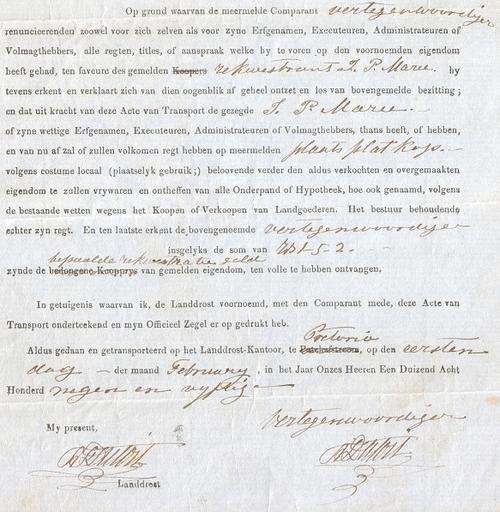 Op grond waarvan de meermelde Comparant vertegenwoordiger
renuncierenden zoowel voor zich zelven als voor zyne Erfgenamen, Executeuren, Administrateuren of
Volmagthebbers, alle regten, titles, of aanspraak welke hy te voren op den voornoemden eigendom
heeft gehad, ten faveure des gemelden Koopers rekwestrant J. P. Maree. hy
tevens erkent en verklaart zich van dien oogenblik af geheel ontzet en los van bovengemelde bezitting;
en dat uit kracht van deze Acte van Transport de gezegde J. P. Maree.—
of zyne wettige Erfgenamen, Executeuren, Administrateuren of Volmagthebbers, thans heeft, of hebben,
en van nu af zal of zullen volkomen regt hebben op meermelden plaats plat kop.—
volgens costume locaal (plaatselyk gebruik;) beloovende verder den aldus verkochten en overgemaakten
eigendom te zullen vrywaren en ontheffen van alle Onderpand of Hypotheek, hoe ook genaamd, volgens
de bestaande wetten wegens het Koopen of Verkoopen van Landgoederen. Het bestuur behoudende
echter zyn regt. En ten laatste erkent de bovengenoemde vertegenwoordiger
insgelyks de som van Rds 1-5-2.—
bepaalde rekwestratie geld
zynde de bedongene Koopprys van gemelden eigendom, ten volle te hebben ontvangen,
In getuigenis waarvan ik, de Landdrost voornoemd, met den Comparant mede, deze Acte van
Transport onderteekend en myn Officieel Zegel er op gedrukt heb.
Pretoria
Aldus gedaan en getransporteerd op het Landdrost-Kantoor, te Potchefstroom, op den eersten
dag — der maand February, in het Jaar Onzes Heeren Een Duizend Acht
Honderd negen en vyftig—
vertegenwoordiger
My present,
Landdrost